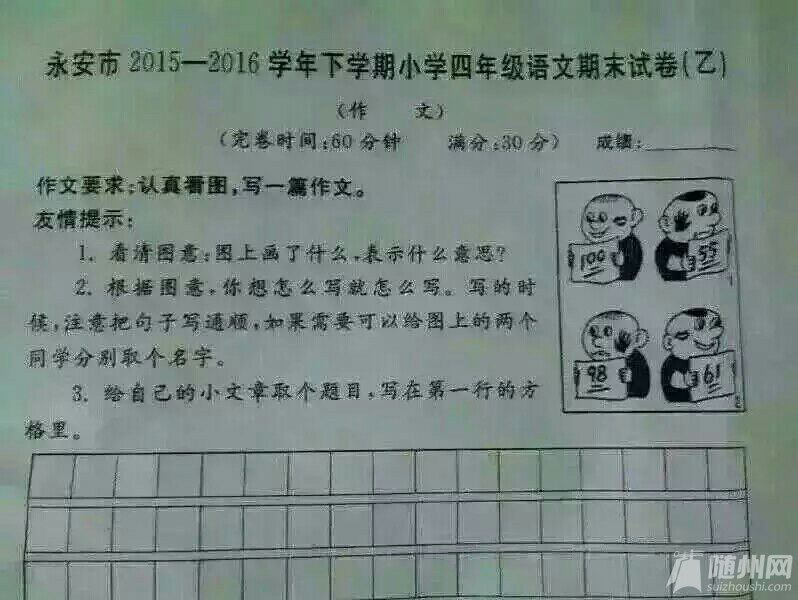 永安市 2015—2016 学年下学期小学四年级语文期末试卷(乙)
(作 文)
(完卷时间:60 分钟 满分:30 分) 成绩:
作文要求:认真看图,写一篇作文。
友情提示:
1. 看清图意:图上画了什么,表示什么意思?
2. 根据图意,你想怎么写就怎么写。写的时
候,注意把句子写通顺,如果需要可以给图上的两个
同学分别取个名字。
3. 给自己的小文章取个题目,写在第一行的方
格里。
100
55
1
98
61
2
随州网
suizhoushi.com